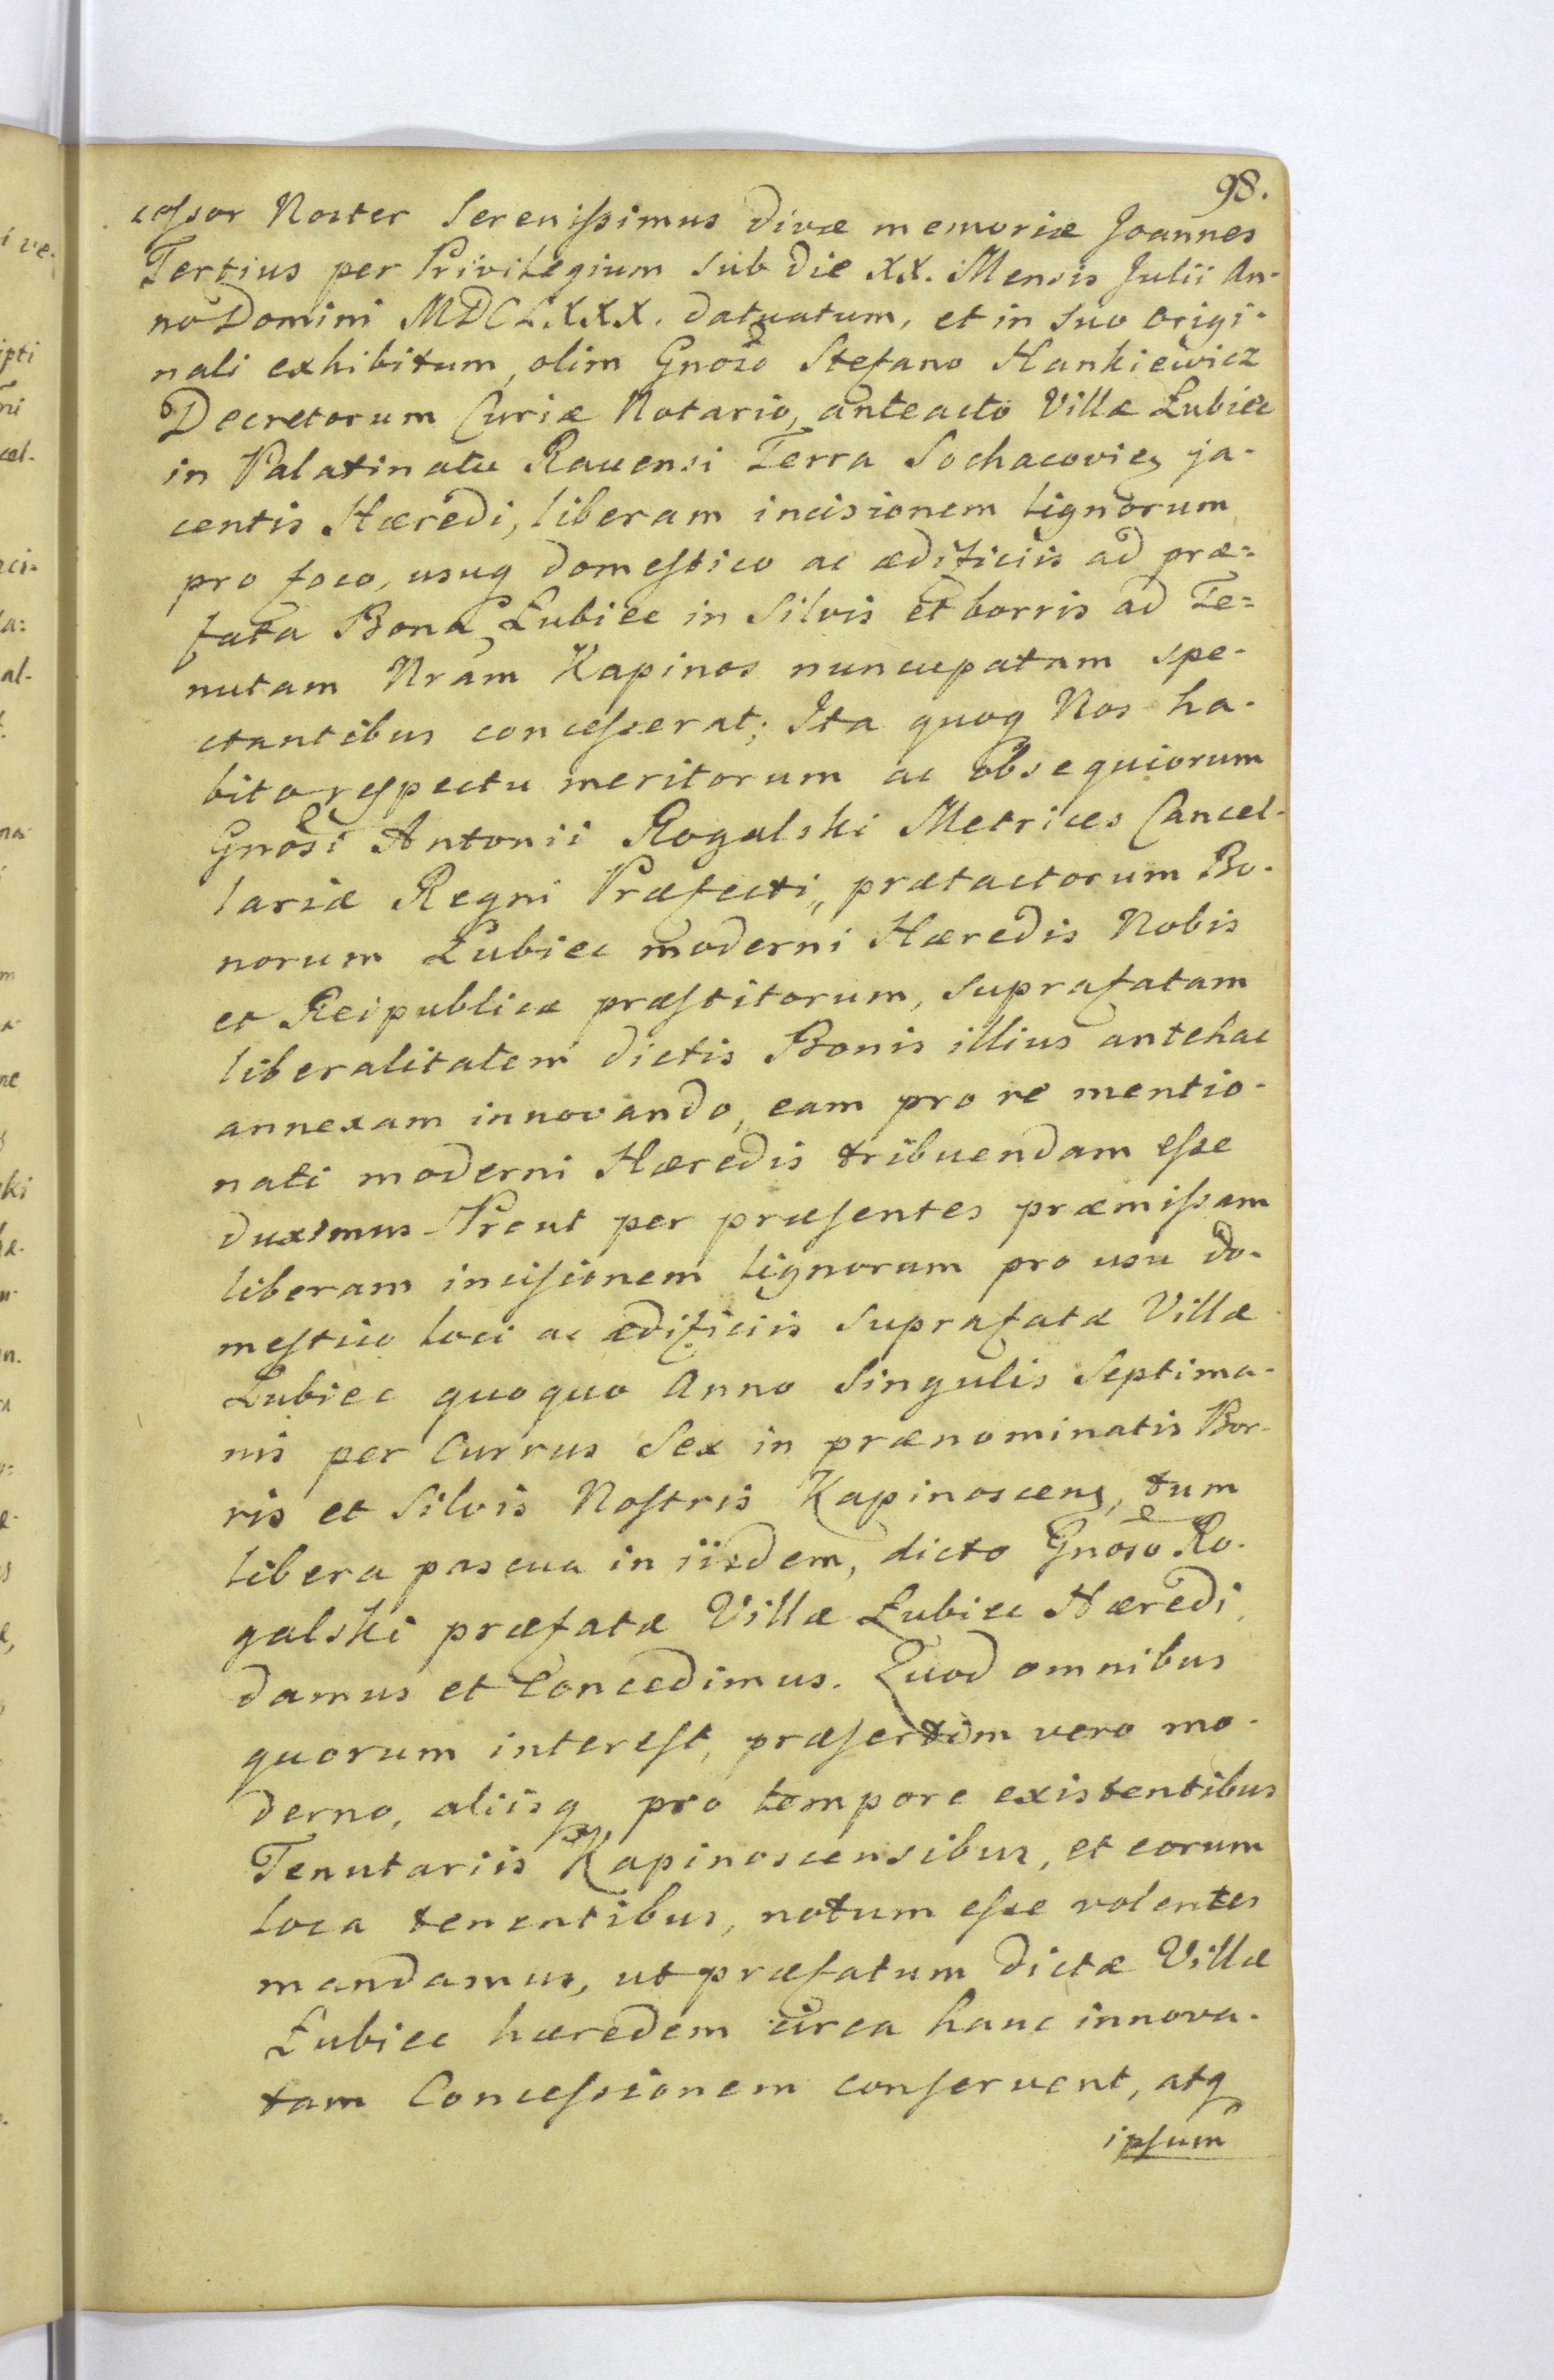 98.
cessor Noster Serenissimus divæ memoriæ Joannes
Tertius per Privilegium sub die XX. Mensis Julii An-
no Domini MDCLXXX. datuatum, et in suo origi-
nali exhibitum, olim Gnoso Stefano Hankiewicz
Decretorum Curiæ Notario, anteacto Villæ Łubiec
in Palatinatu Rauensi Terra Sochacoviē ja-
centis Hæredi, liberam incisionem lignorum
pro foco, usuq domestico ac ædificiis ad præ=
fata Bona Łubiec in Silvis et borris ad Te=
nutam Nram Kapinos nuncupatam spe-
ctantibus concesserat; Ita quoq Nos ha-
bito respectu meritorum ac obsequiorum
Gnosi Antonii Rogalski Metrices Cancel-
lariæ Regni Præfecti, prætactorum Bo-
norum Łubiec moderni Hæredis Nobis
et Reipublicæ præstitorum, suprafatam
liberalitatem dictis Bonis illius antehac
annexam innovando, eam pro re mentio-
nati moderni Hæredis tribuendam esse
duximus. Prout per præsentes præmissam
liberam incisionem lignorum pro usu do-
mestico loci ac ædificiis suprafatæ Villæ
Łubiec quoquo Anno Singulis Septima-
nis per Currus Sex in prænominatis Bor-
ris et Silvis Nostris Kapinosceñ, tum
libera pascua in iisdem, dicto Gnoso Ro-
galski præfatæ Villæ Łubiec Hæredi,
damus et Concedimus. Quod omnibus
quorum interest, præsertim vero mo-
derno, aliisq pro tempore existentibus
Tenutariis Kapinoscensibus, et eorum
loca tenentibus, notum esse volentes
mandamus, ut præfatum dictæ Villæ
Łubiec hæredem circa hanc innova-
tam Concessionem conservent, atq
ipsum